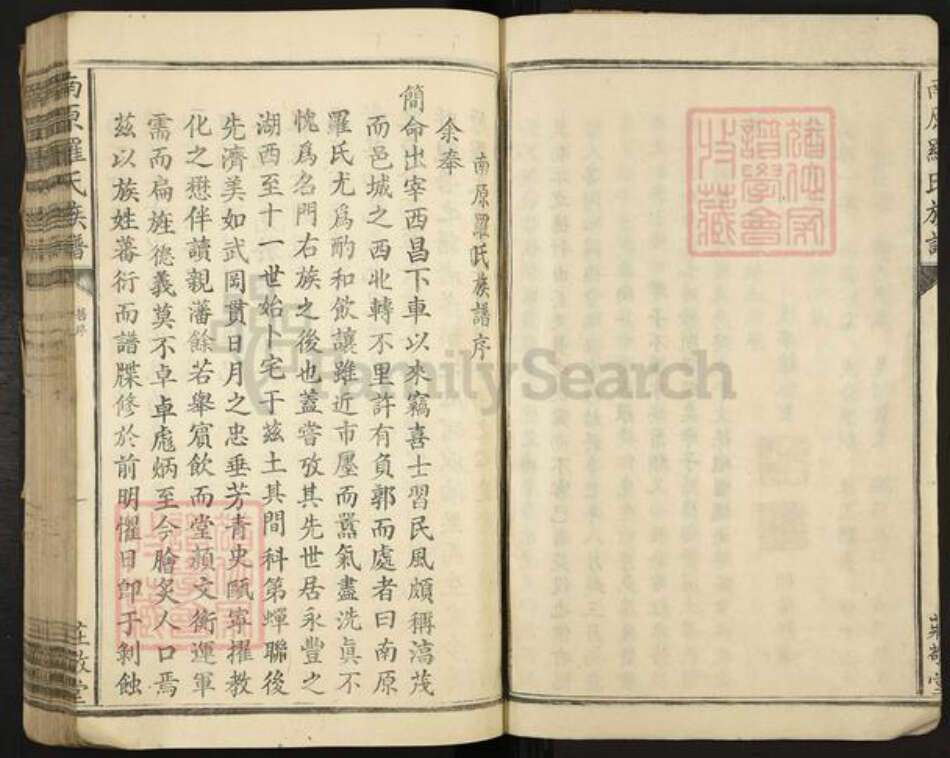 南原羅氏族譜序
余奉
簡命出宰西昌下車以來竊喜士習民風頗稱滈茂
而邑城之西北轉不里許有負郭而處者曰南原
羅氏尤爲酌和飲讓雖近市廛而囂氣盡洗眞不
愧爲名門右族之後也蓋嘗攷其先世居永豐之
湖西至十一世始卜宅于茲土其間科第蟬聯後
先濟美如武岡貫日月之忠垂芳青史甌寧擢教
化之懋伴讀親藩餘若舉賓飲而堂頯文衡運軍
需而扁旌德義莫不卓卓彪炳至今膾炙人口焉
茲以族姓蕃衍而譜牒修於前明懼日即于剝蝕
南原羅氏族譜
舊序
一
莊敬堂
南原羅氏族譜
莊敬堂
譜學會
收藏
FamilySearch